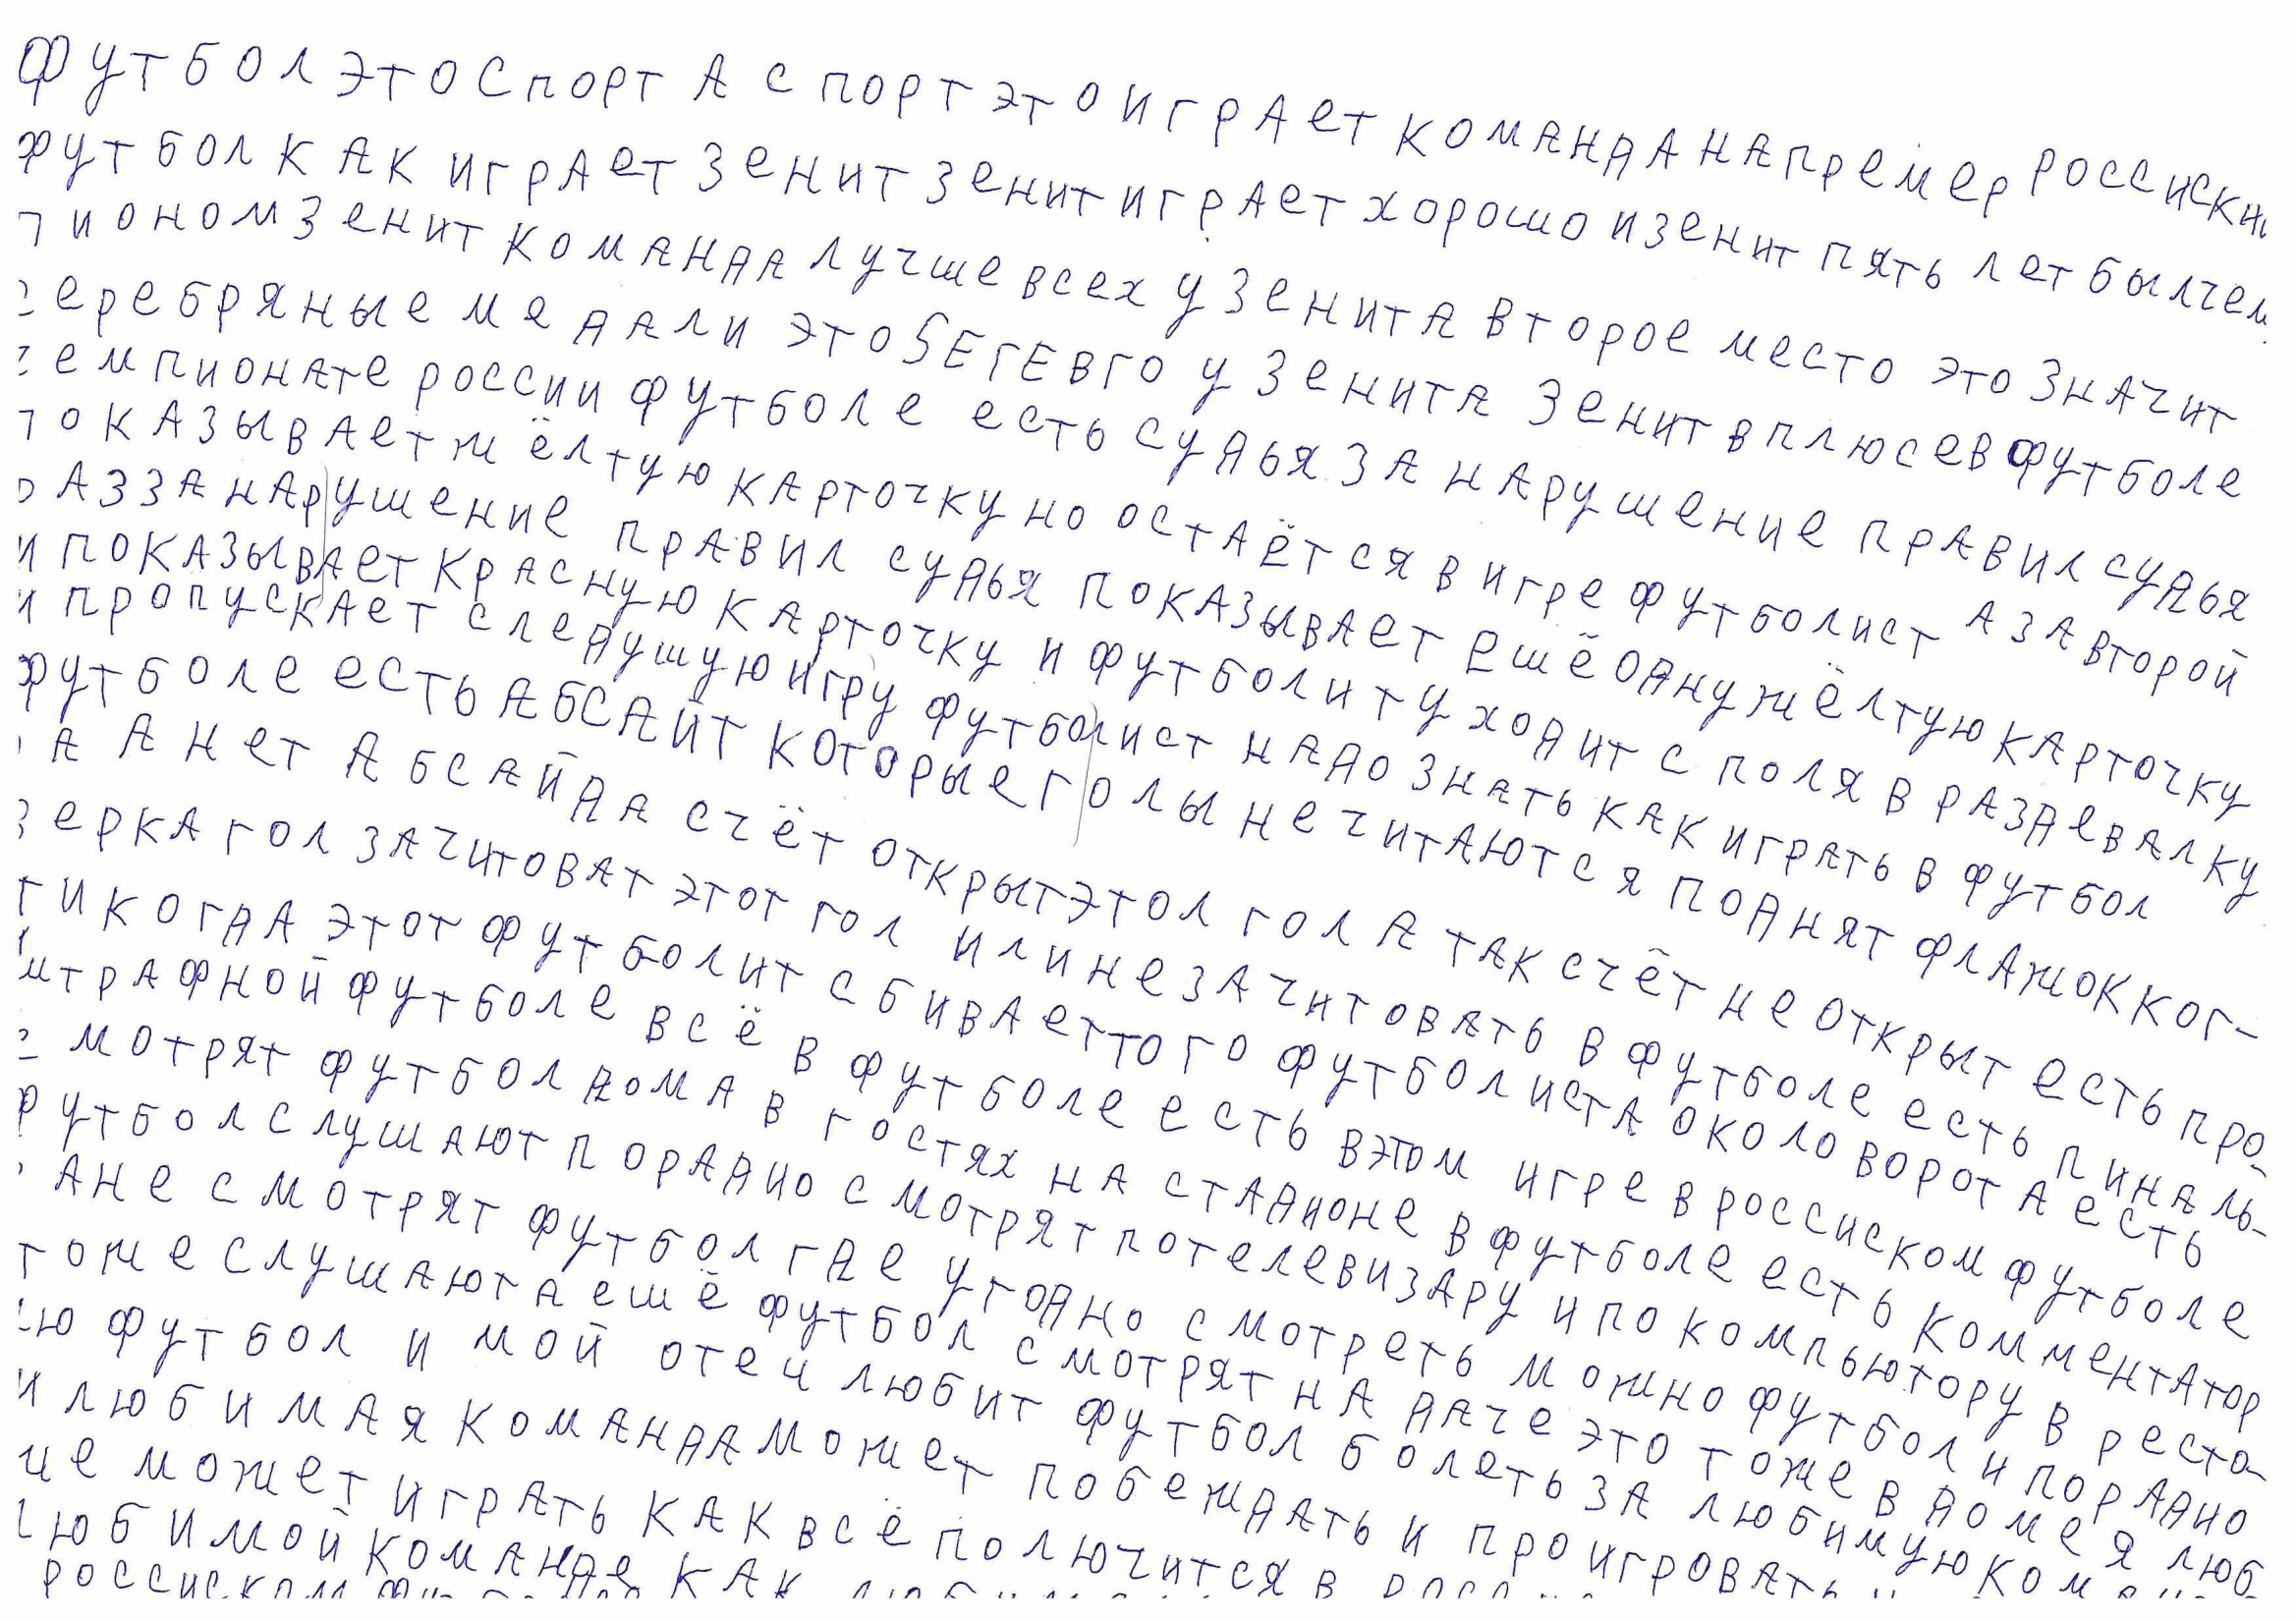 футбол это спорт а спорт это играет команда напремер россиски
футбол как играет зенит зенит играет хорошо и зенит пять лет был чем
пионом зенит команда лучше всех у зенита второе место это значит
серебряные медали это SЕГЕВГО у зенита зенит в плюсе в футболе
чемпионате россии футболе есть судья за нарушение правил судья
показывает жёлтую карточку но остаётся в игре футболист а за второй
раз за нарушение правил судья показывает ешё одну жёлтую карточку
и показывает красную карточку и футболит уходит с поля в раздевалку
и пропускает следушую игру футболист надо знать как играть в футбол
футболе есть абсайт которые голы не читаются поднят флажок ког-
да а нет абсайда счёт открыт этол гол а так счёт не открыт есть про
верка гол зачитоват этот гол или не зачитовать в футболе есть пиналь-
ти когда этот футболит сбивает того футболиста около ворот а есть
штрафной футболе всё в футболе есть в этом игре в россиском футболе
смотрят футбол дома в гостях на стадионе в футболе есть комментатор
футбол слушают по радио смотрят по телевизару и по компьютору в реста-
ране смотрят футбол где угодно смотреть можно футбол и по радио
тоже слушают а ешё футбол смотрят на даче это тоже в доме я люб
лю футбол и мой отец любит футбол болеть за любимую
и любимая команда может побеждать и проигровать
не может играть как всё полючится в
любимой команде как
россиском